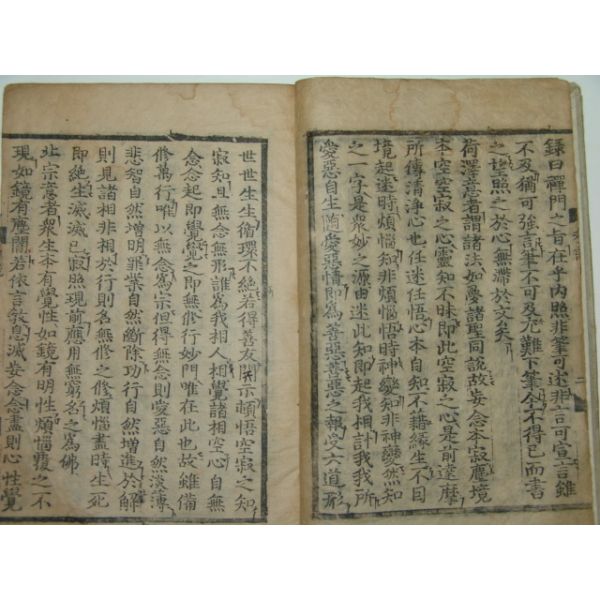 錄曰禪門之旨在乎內照非筆可述非言可宣言雖
不及猶可强言筆不可及尤難下筆今不得已而書
之望照之於心無滯於文矣
荷澤意者謂諸法如夢諸聖同說故妄念本寂塵境
本空空寂之心靈知不昧即此空寂之心是前達摩
所傳清淨心也任迷任悟心本自知不藉緣生不因
境起迷時煩惱知非煩惱悟時神變知非神變然知
之一字是衆妙之源由迷此知即起我相計我我所
愛惡自生隨愛惡情即爲善惡善惡之報受六道形
世世生生循環不絕若得善友開示頓悟空寂之知
寂知且無念無形誰爲我相人相覺諸相空心自無
念念起即覺覺之即無修行妙門唯在此也故雖備
修萬行唯以無念爲宗但得無念則愛惡自然淡薄
悲智自然增明罪業自然斷除功行自然增進於解
則見諸相非相於行則名無修之修煩惱盡時生死
即絕生滅滅已寂照現前應用無窮名之爲佛
北宗意者衆生本有覺性如鏡有明性煩惱覆之不
現如鏡有塵闇若依言敎息滅妄念念盡則心性覺